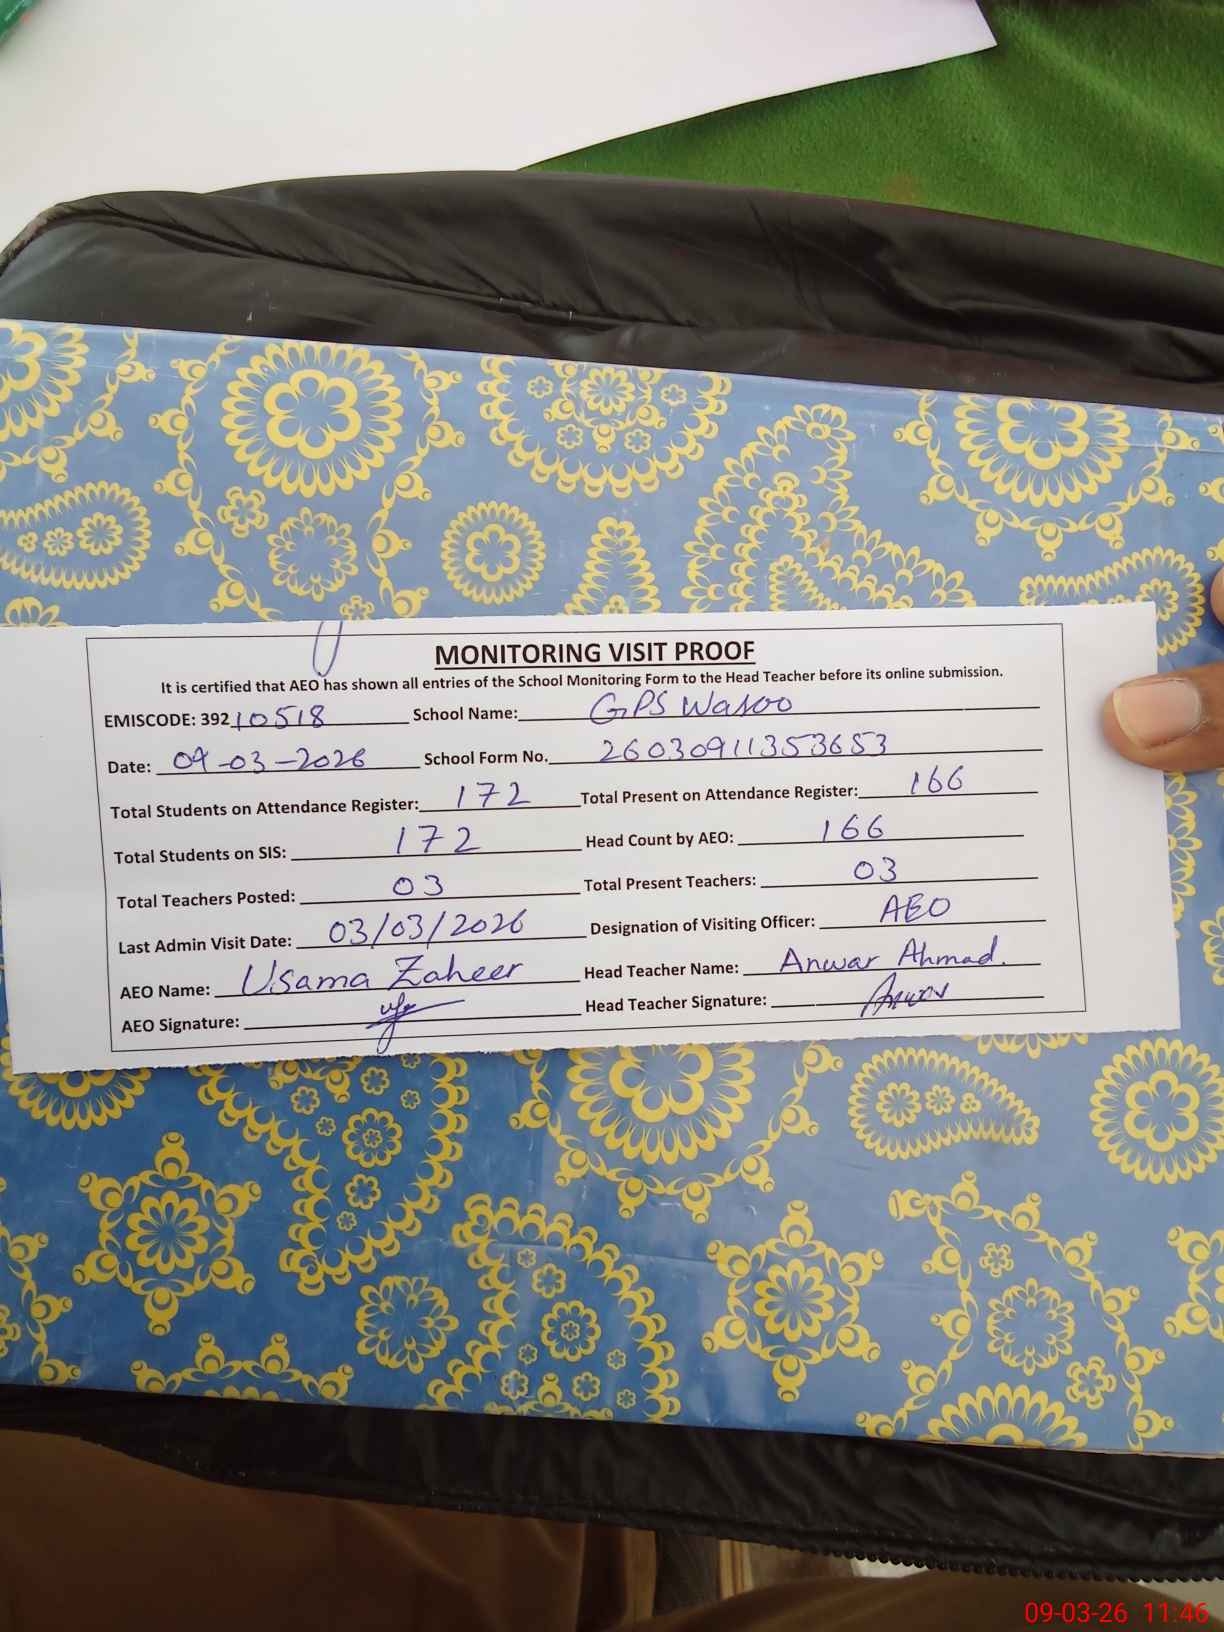 MONITORING VISIT PROOF
It is certified that AEO has shown all entries of the School Monitoring Form to the Head Teacher before its online submission.
EMISCODE: 39210518 School Name: GPS Wasoo
Date: 09-03-2026 School Form No. 26030911353653
Total Students on Attendance Register: 172 Total Present on Attendance Register: 166
Total Students on SIS: 172 Head Count by AEO: 166
Total Teachers Posted: 03 Total Present Teachers: 03
Last Admin Visit Date: 03/03/2026 Designation of Visiting Officer: AEO
AEO Name: Usama Zaheer Head Teacher Name: Anwar Ahmad.
AEO Signature: Head Teacher Signature: Anwar
09-03-26 11:46